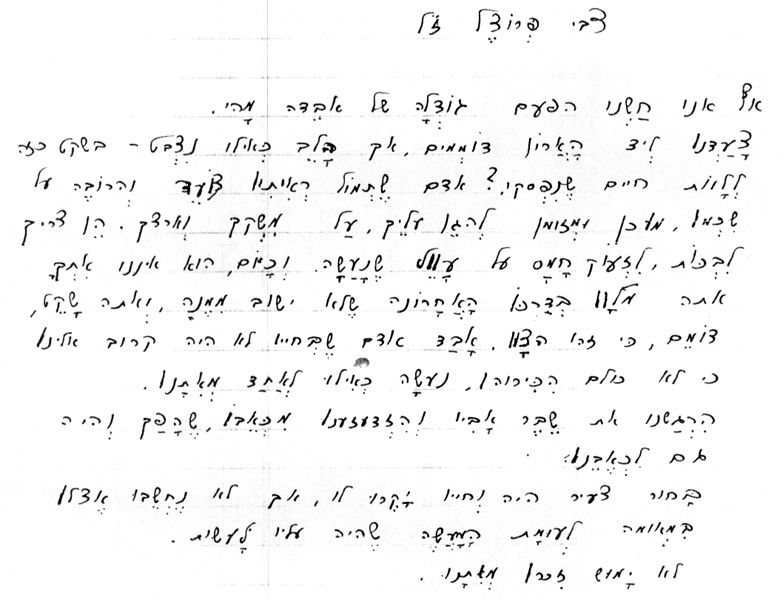 צבי פרוצל ז"ל
אף אנו חשנו הפעם גודלה של אבדה מהי.
צעדנו ליד הארון דוממים, אך הלב כאילו נצבט – בשקט כזה
ללוות חיים שנפסקו? אדם שתמול ראיתיו צועד והרובה על
שכמו, מוכן ומזומן להגן עליך, על משקך וארצך. הן צריך
לבכות, לזעוק חמס על עוול שנעשה. וכיום, הוא איננו אתך,
אתה מלוו בדרכו האחרונה שלא ישוב ממנה, ואתה שקט,
דומם, כי זהו הצו. אבד אדם שבחייו לא היה קרוב אלינו
כי לא כולם הכירוהו, נעשה כאילו לאחד מאתנו.
הרגשנו את שבר אביו והזדעזענו מכאבו, שהפך והיה
גם לכאבנו.
בחור צעיר היה וחייו יקרו לו, אך לא נחשבו אצלו
במאומה לעומת המעשה שהיה עליו לעשות.
לא ימוש זכרו מאתנו.